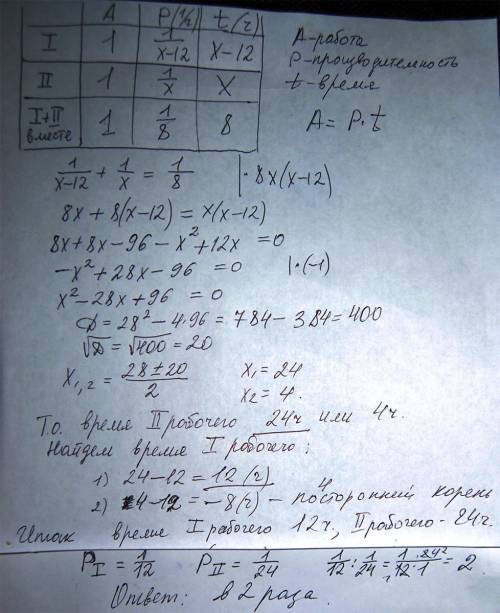 A P(1/ч) t(ч)
I 1 1/(x-12) x-12
II 1 1/x x
I+II вместе 1 1/8 8
A-работа
P-производительность
t-время
A = P·t
1/(x-12) + 1/x = 1/8 |·8x(x-12)
8x+8(x-12) = x(x-12)
8x+8x-96-x²+12x = 0
-x²+28x-96 = 0 |·(-1)
x²-28x+96 = 0
D = 28²-4·96 = 784-384 = 400
√D = √400 = 20
x₁,₂ = (28±20)/2 x₁ = 24
x₂ = 4.
Т.о. время II рабочего 24ч или 4ч.
Найдем время I рабочего:
1) 24-12 = 12 (ч)
2) 4-12 = -8(ч) - посторонний корень
Итак время I рабочего 12ч, II рабочего - 24ч.
P_I = 1/12 P_II = 1/24 1/12 : 1/24 = 1·24²/12·1 = 2
Ответ: в 2 раза.